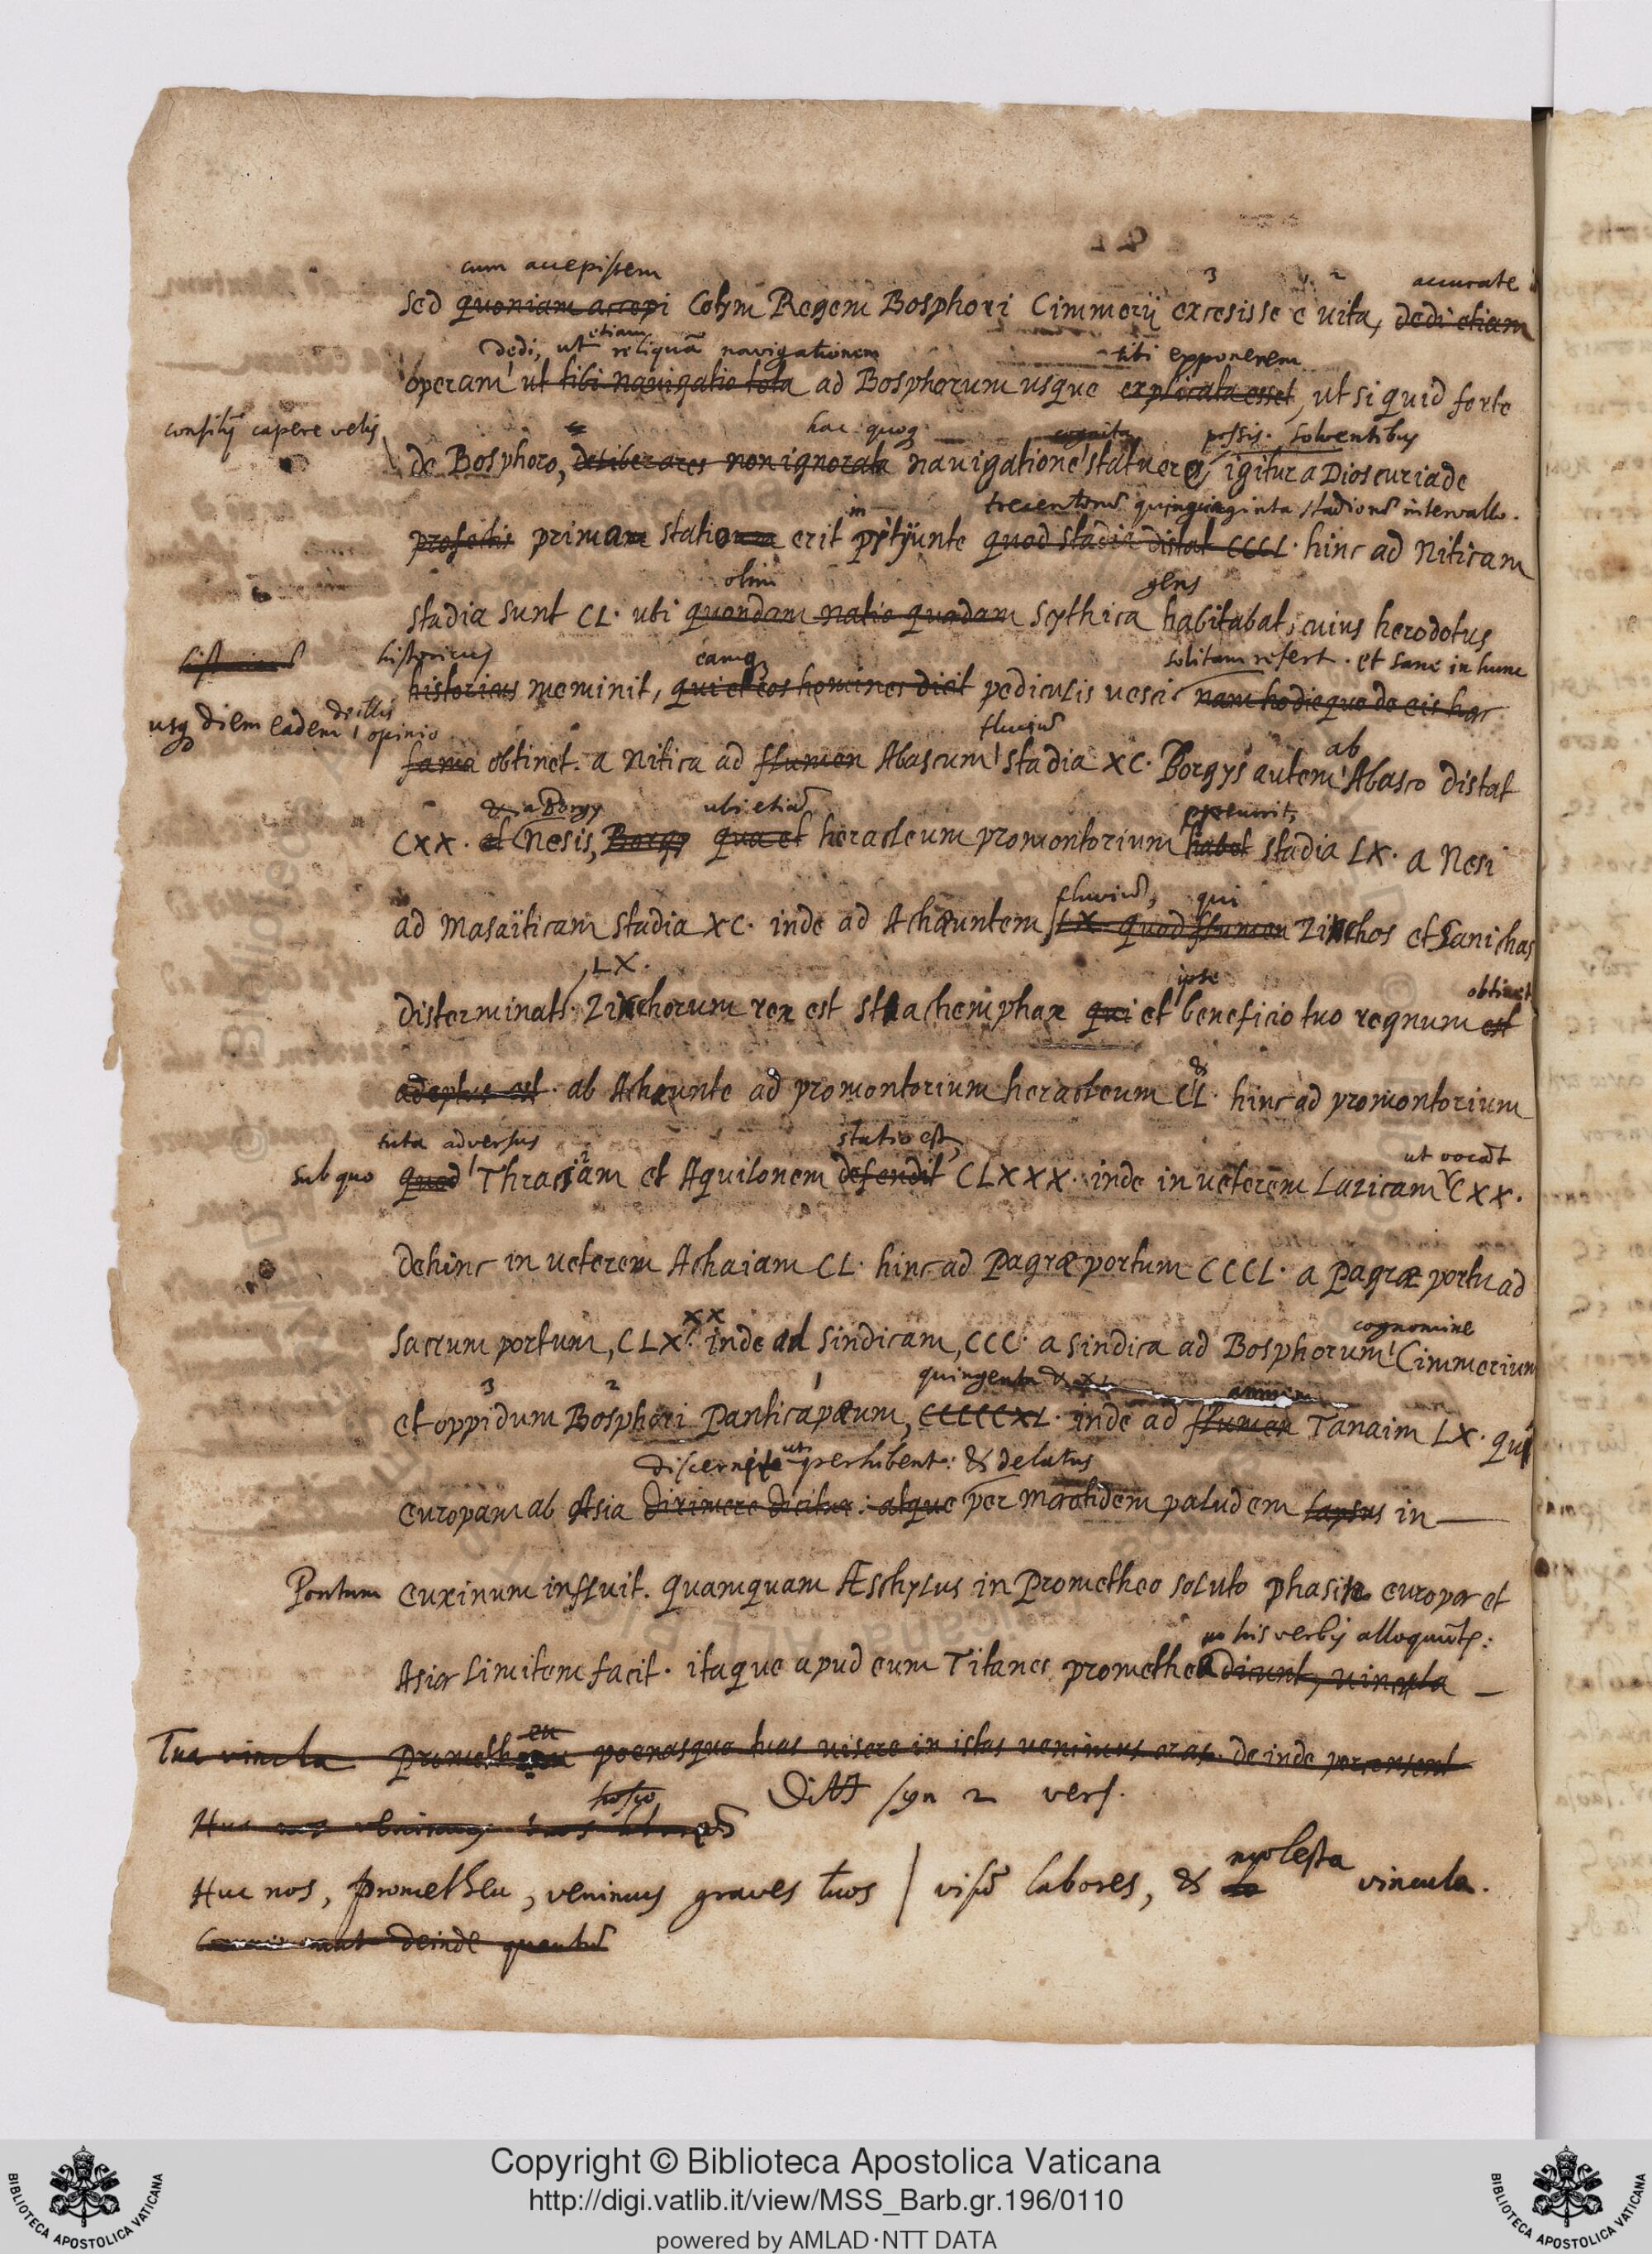 cum accepissem 3 2 accurate
sed quoniam accepi Cotym Regem Bosphori Cimmerij excesisse e vita, dedi etiam
dedi, ut etiam reliquã navigationem tibi exponerem
operam ut tibi navigatio tota ad Bosphorum usque explicata esset, ut si quid forte
consilij capere velis hac quoq cognita possis. solventibus
de Bosphoro, deliberares non ignorata navigatione statuere, igitur a Dioscuriade
in trecentorũ quinquaginta stadiorũ intervallo.
profectis primam stationem erit pityunte quod stadia distat CCCL. hinc ad Niticam
olim gens
stadia sunt CL. ubi quondam natio quædam Scythica habitabat, cuius herodotus
historicus eamq solitam refert. et sane in hunc
historicus meminit, qui et eos homines dicit pediculis vesci nam hodieque de eis hæc
usq diem eadem de illis opinio fluviũ ab
fama obtinet. a Nitica ad flumen Abascum stadia XC. Borgys autem Abasco distat
& a Borgy ubi etiã
CXX. et Nesis, Borgy qua et heracleum promontorium habet stadia LX. a Nesi
fluviũ, qui
ad Masaïticam stadia XC. inde ad Achæuntem LX. quod flumen Zinchos et Sanichas
LX. ipse obtinet
disterminat. Zinchorum rex est stachemphax qui et beneficio tuo regnum est
&
adeptus est. ab Achæunte ad promontorium heracleum CL. hinc ad promontorium
tuta adversus statio est, ut vocãt
sub quo quod Thraciam et Aquilonem defendit CLXXX. inde in veterem Lazicam CXX.
dehinc in veterem Achaiam CL. hinc ad Pagræ portum CCCL. a Pagræ portu ad
XX cognomine
sacrum portum, CLX. inde ad Sindicam, CCC. a Sindica ad Bosphorum Cimmerium
3 2 1 quingenta & XL amnem
et oppidum Bosphori Panticapæum, CCCCCXL. inde ad flumen Tanaim LX. qui
ut perhibent: & delatus
europam ab Asia dirimere dicitur: atque per Mæotidem paludem lapsus in
Pontum euxinum influit. quamquam Æschylus in Prometheo soluto phasin europæ et
his verbis alloquũt:
Asiæ limitem facit. itaque apud eum Titanes prometheo dicunt, vincula
eu
Tua vincla Prometheu poenasque tuas visere in istas venimus oras. deinde percensent
syn 2 vers.
Huc nos venimus tuos
Huc nos, prometheu, venimus graves tuos / visũ labores, & molesta vincula.
deinde quantũ